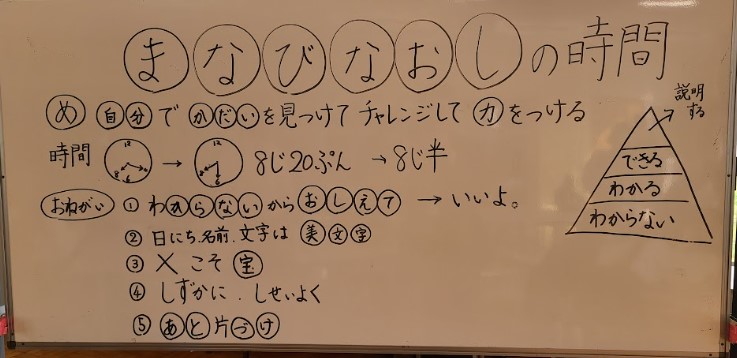 まなびなおしの時間
め 自分でかだいを見つけてチャレンジして力をつける
時間 → 8じ20ぷん → 8じ半
おねがい ① わからないからおしえて → いいよ。
② 日にち、名前、文字は美文字
③ ✕こそ宝
④ しずかに.しせいよく
⑤ あと片づけ
説明する
できる
わかる
わからない